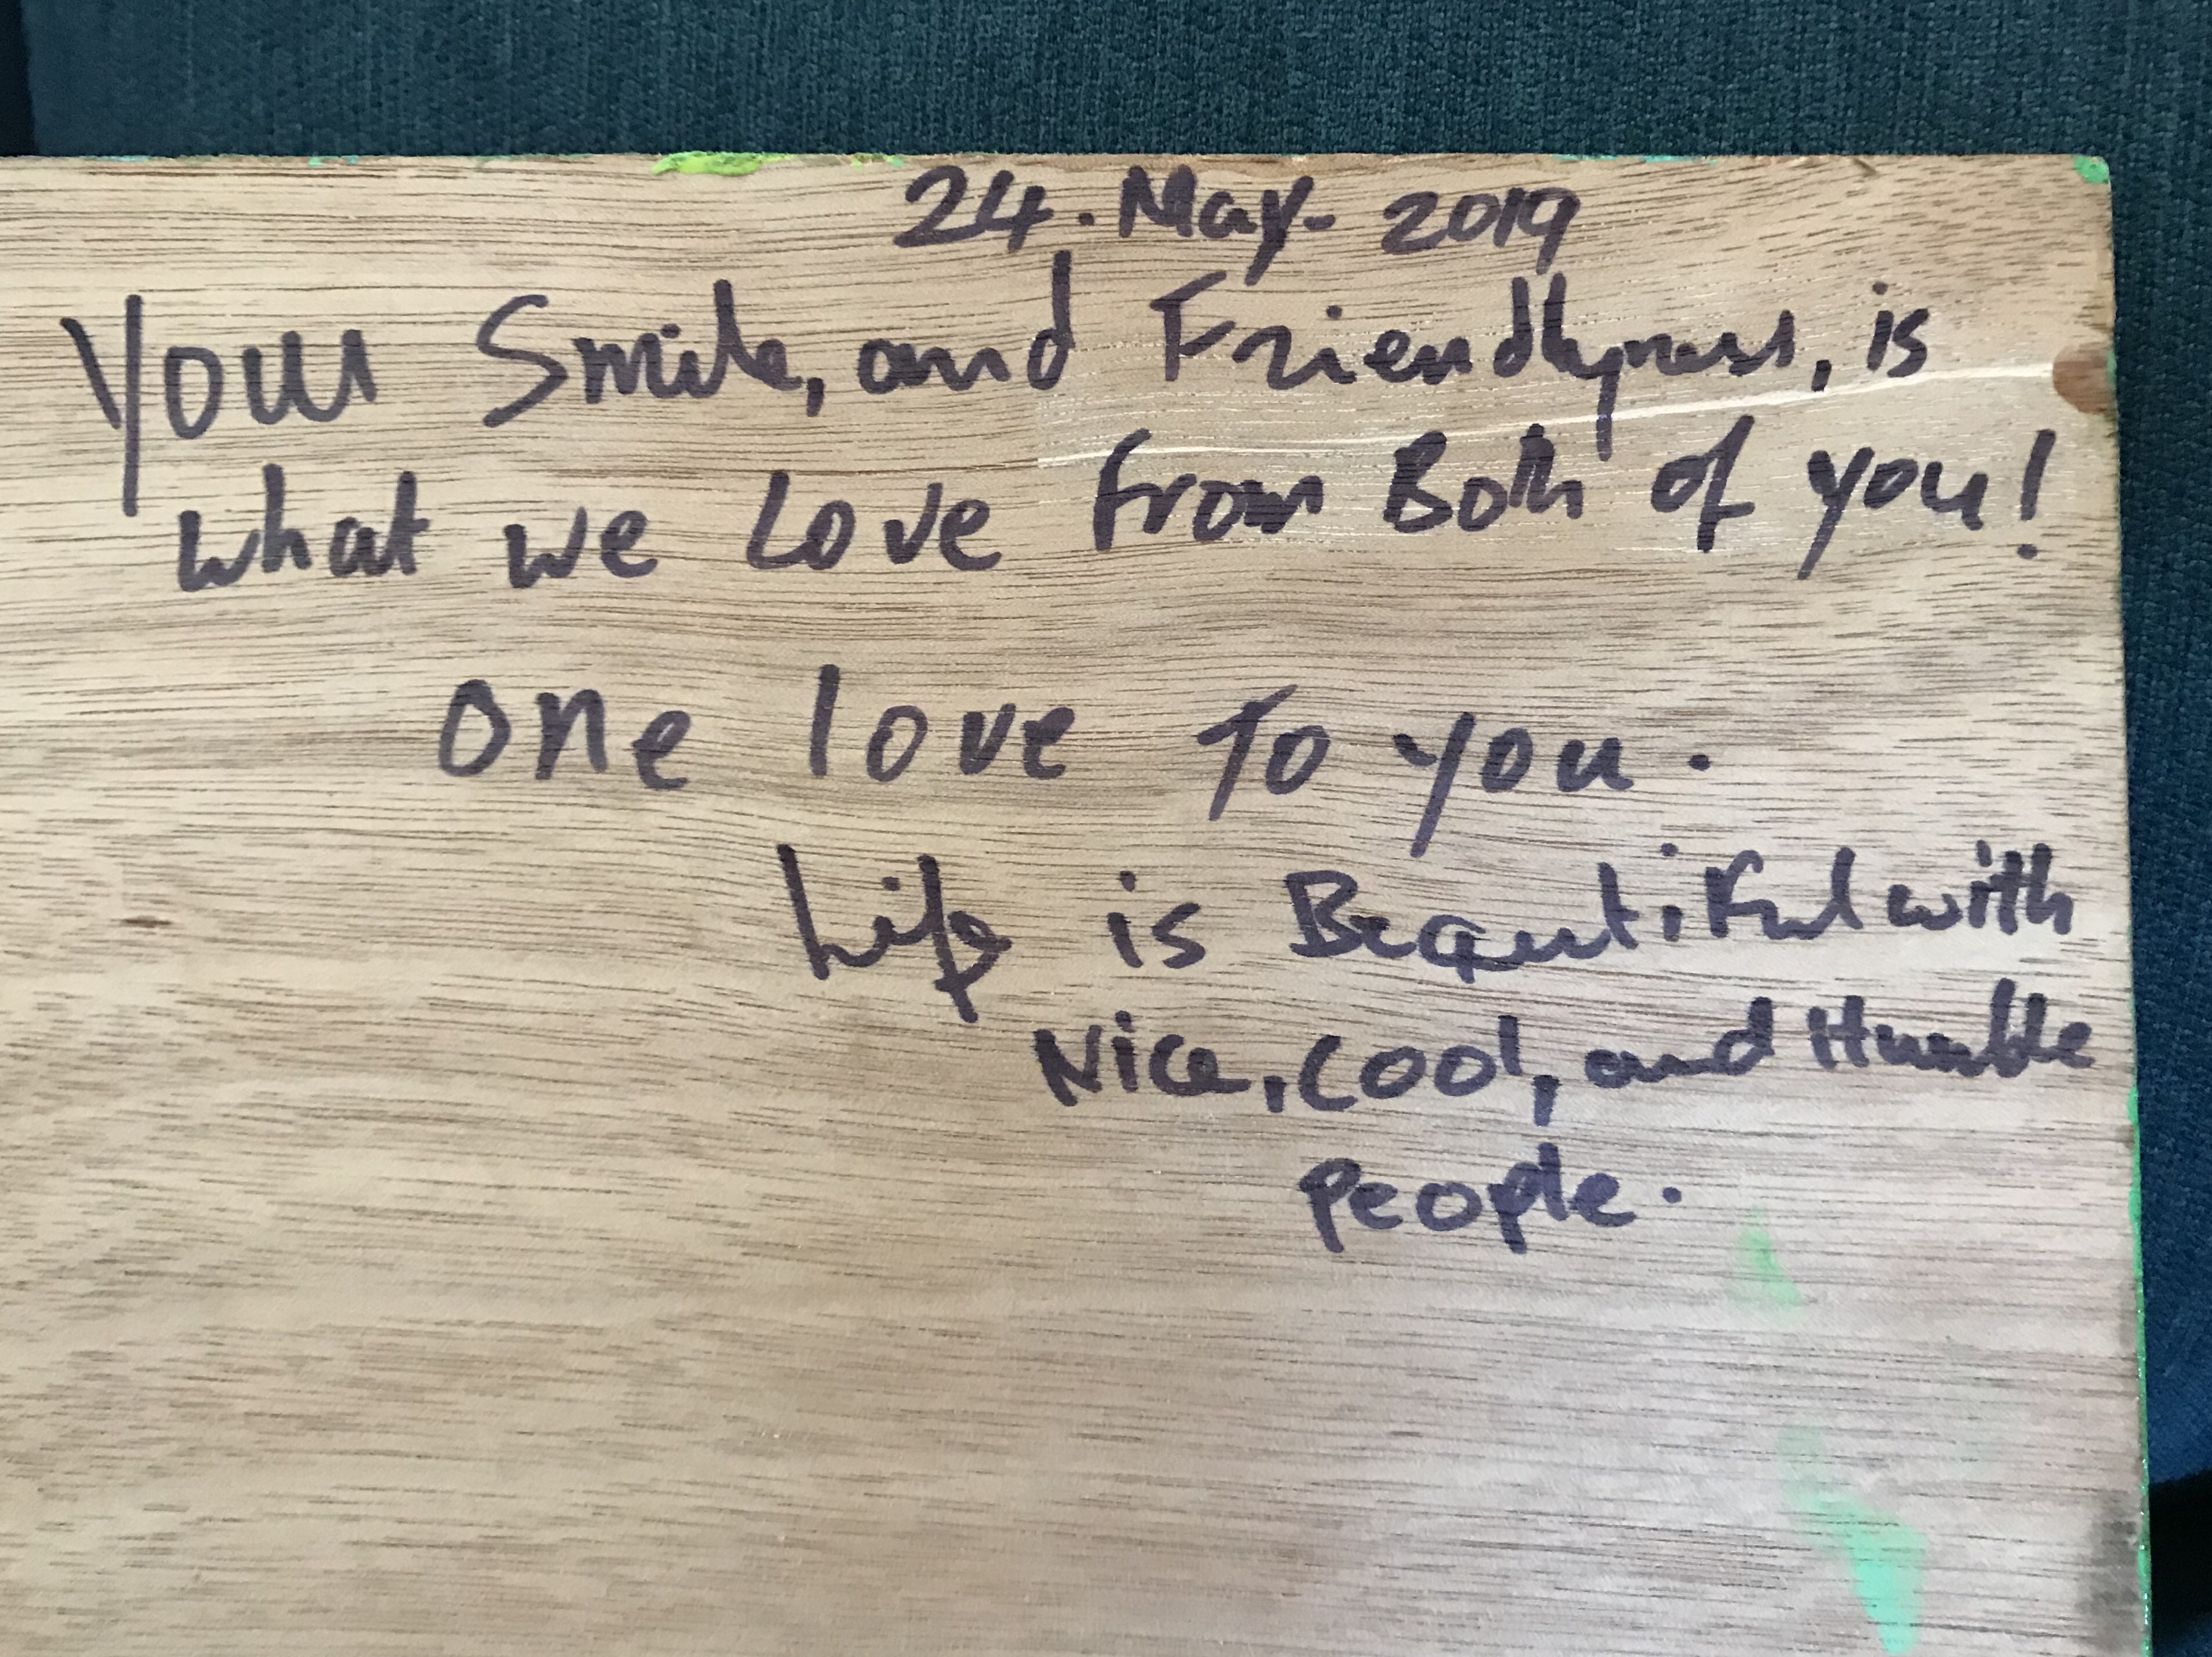 24. May. 2019
Your Smile, and Friendlyness, is
what we Love from Both of you!
one love To you.
Life is Beautiful with
Nice, cool, and Humble
people.